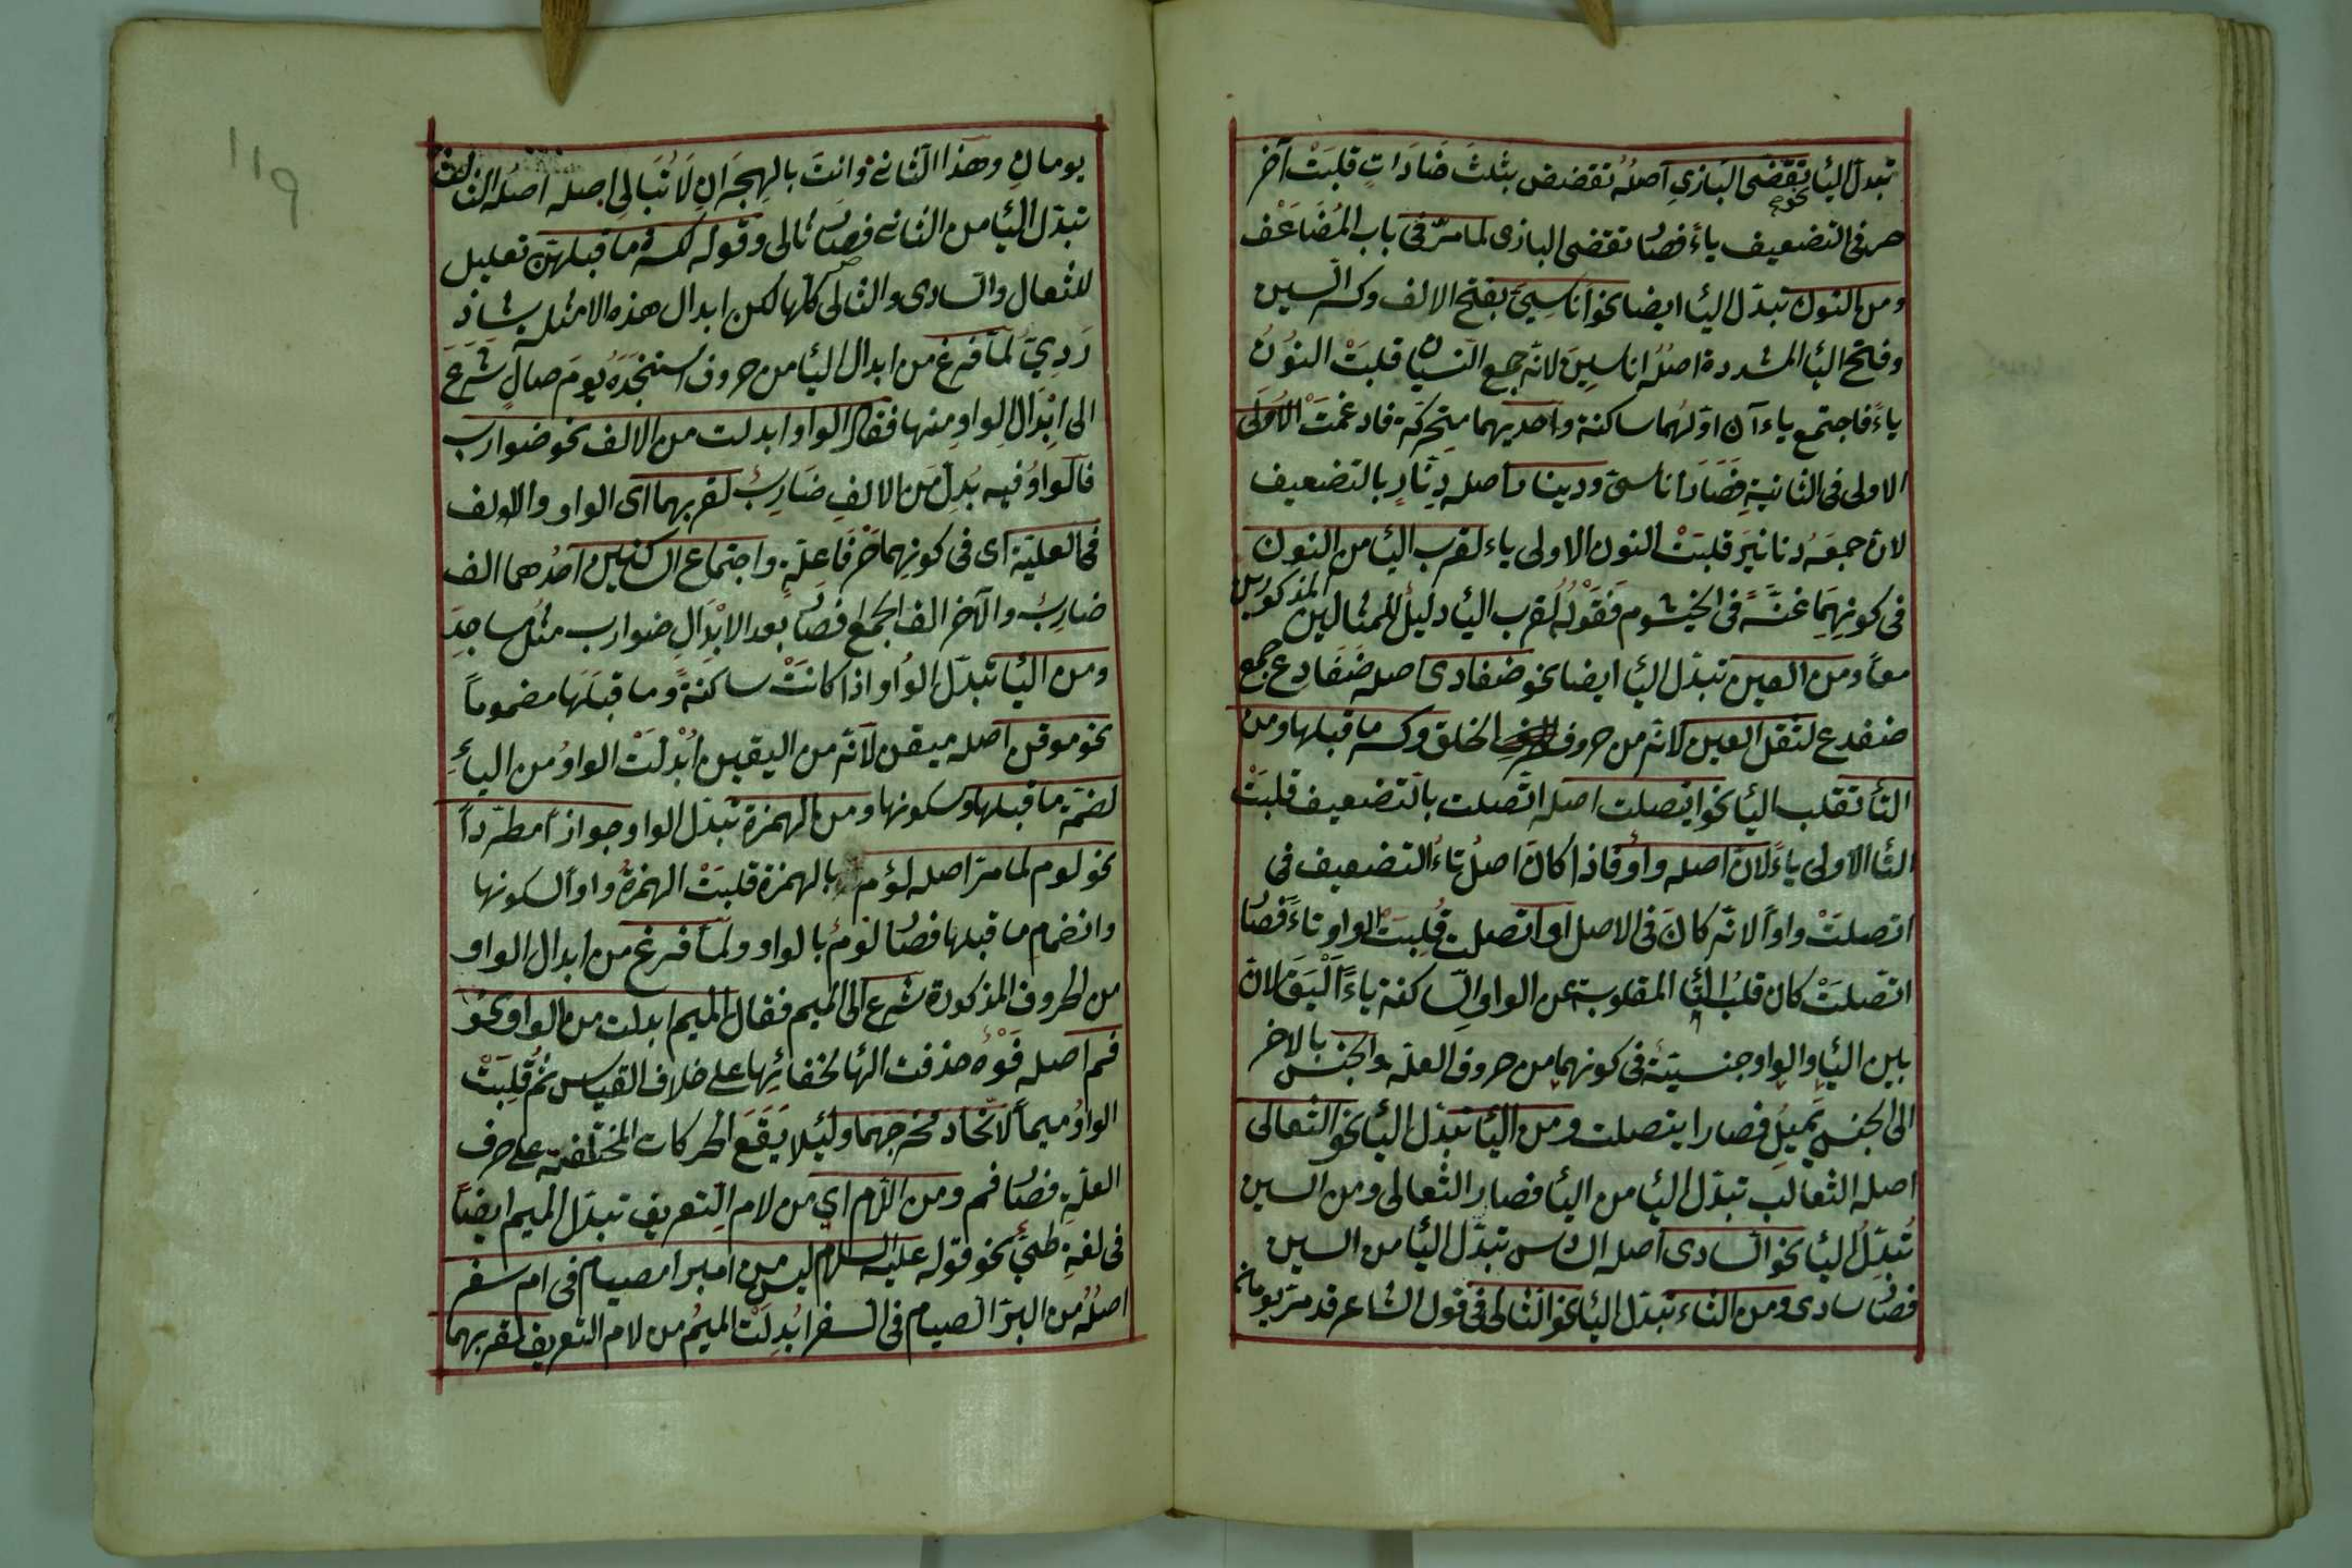 تبدل اليا نحو تقضى البازي اصله تقضض بثلث ضادات قلبت آخر
هن فى التضعيف ياء فصار تقضى البازى لما مرّ فى باب المُضَاعَف
ومن النون تبدّل اليا ايضا نحو اناسِىّ بفتح الالف وكسر السين
وفتح اليا المشددة اصلُه اناسينَ لانه جمع انسان قلبَتْ النوُن
ياءً فاجتمع ياءآن اوّلهُما ساكنة واحديهما متحركة فادغمَتْ الاُولَى
الاولى فى الثانيةِ فصَارَ اناسىّ ودينار اصله دِنّارٍ بالتضعيف
لانّ جمعَهُ دنانيَر قلبَتْ النون الاولى ياء لقرب اليا من النون
فى كونِهِمَا غنّةً فى الخيشوم فقَوْلُهُ لقرب اليا دليلُ للمثالين المذكورين
معاً ومن العين تبدّل اليا ايضا نحو ضفادى اصله ضَفَادِع جمع
ضفدع لثقل العين لانّه من حروف الحلق وكسر ما قبلها ومن
التأ تقلب اليأ نحو ايتصلت اصله اتّصلت بالتضعيف قلبَتْ
التأ الاولى ياءً لان اصله واوُ فاذا كان اصلُ تاءُ التضعيف فى
اتصلتْ واواً لانّه كانَ فى الاصل اوتصلت قُلِبَتْ الواو تاءً فصار
اتّصلَتْ كان قلبُ التّأ المقلوبة عن الواوِ السّاكنة ياءً اَلْيَقَ لانّ
بين اليأ والواو جنسيّتهً فى كونهما من حروف العلّة والجنس بالاخر
الى الجنس يَميلُ فصار ايتصلت ومن اليأ تبدّل اليأ نحو الثعالى
اصله الثعالب تبدّل اليا من اليا فصار الثَعالى ومن السين
تُبدّلُ اليا نحو السادى اصله السادس تبدّل اليا من السين
فصار سادى ومن الثاء تبدّل اليا نحو الثالى فى قول الشاعر قد مرّ يومان
يومانِ وهذَا الثانى وانتَ بالهِجَرانِ لَا تُبَالِى اصله اصله الثالث
تبدّل اليا من الثانى فصار ثالى وقوله لكسرة ما قبلهنّ تعليل
للثعالى والسادى والثالى كلّها لكن ابدال هذه الامثله شاذ
رَدِىّ لمّا فرغ من ابدال اليأ من حروف استنجدَهُ يومَ صالٍ شرَعَ
الى ابْدَالِ الواو منها فقال الواو ابدلت من الالف نحو ضوارب
فالواوُ فيه بُدِلَ مَن الالفِ ضَارِبٌ لقربهما اى الواو والالف
فى العليّة اى فى كونِهما حَرْفَا علّةٍ واجتماع الساكنين احدُهما الف
ضارِبٌ والآخر الف الجمع فصار بعد الابْدَالِ ضوارب مثل مساجدَ
ومن اليأ تبدّل الواو اذا كانتْ ساكنةً وما قبلَهَا مضموماً
نحو موقن اصله ميقن لانّه من اليقين اُبْدلَتْ الواوُ من اليأِ
لضمّة ما قبلها وسكونها ومن الهمزة تبدّل الواو جوازاً مطّرداً
نحو لوم لما مرّ اصله لؤم بالهمزة قلبَتْ الهمزةُ واواً لسكونها
وانضمام ما قبلها فصار لومُ بالواو ولمّا فرغ من ابدال الواو
من الحروف المذكورة شرع الى الميم فقال الميم ابدلت من الواو نحوُ
فم اصله فَوْهٌ حذفت الهأ لخفائِها على خلاف القياس ثمّ قُلِبَتْ
الواوُ ميماً لاتحاد مخرجهما ولئلا يَقَعَ الحركات المختلفة على حرف
العلّةِ فصار فم ومن اللام اى من لام التّعريف تبدّل الميم ايضاً
فى لغةِ طىّءٍ نحو قوله عليه السلام ليس من امبر امصيام فى ام سفر
اصلُهُ من البرّ الصيام فى السفر اُبُدِلَتْ الميُم من لام التعريف لقربهما